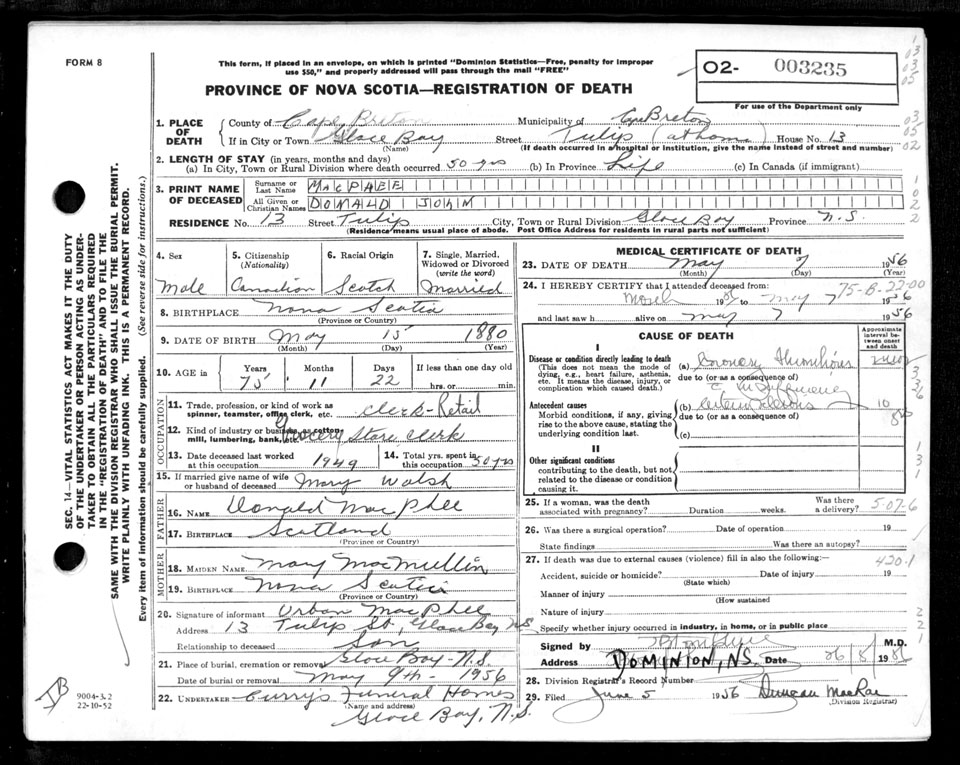 FORM 8
This form, if placed in an envelope, on which is printed "Dominion Statistics—Free, penalty for improper
use $50," and properly addressed will pass through the mail "FREE"
O2- 003235
PROVINCE OF NOVA SCOTIA—REGISTRATION OF DEATH
For use of the Department only
1. PLACE OF DEATH
County of Cape Breton Municipality of Cape Breton
If in City or Town Glace Bay Street Tulip (at home) House No. 13
(Name) (If death occurred in a hospital or institution, give the name instead of street and number)
2. LENGTH OF STAY (in years, months and days)
(a) In City, Town or Rural Division where death occurred 50 yrs (b) In Province Life (c) In Canada (if immigrant)
3. PRINT NAME OF DECEASED
Surname or Last Name MACPHEE
All Given or Christian Names DONALD JOHN
RESIDENCE No. 13 Street Tulip City, Town or Rural Division Glace Bay Province N.S
(Residence means usual place of abode. Post Office Address for residents in rural parts not sufficient)
4. Sex 5. Citizenship 6. Racial Origin 7. Single, Married,
(Nationality) Widowed or Divorced
(write the word)
Male Canadian Scotch Married
8. BIRTHPLACE Nova Scotia
(Province or Country)
9. DATE OF BIRTH May 15 1880
(Month) (Day) (Year)
10. AGE in Years Months Days If less than one day old
75 11 22 hrs. or min.
OCCUPATION
11. Trade, profession, or kind of work as
spinner, teamster, office clerk, etc. Clerk-Retail
12. Kind of industry or business, as cotton
mill, lumbering, bank, etc. Grocery Store Clerk
13. Date deceased last worked
at this occupation 1949
14. Total yrs. spent in
this occupation 50 yrs
15. If married give name of wife
or husband of deceased Mary Walsh
FATHER
16. NAME Donald MacPhee
17. BIRTHPLACE Scotland
(Province or Country)
MOTHER
18. MAIDEN NAME Mary MacMullin
19. BIRTHPLACE Nova Scotia
(Province or Country)
20. Signature of informant Urban MacPhee
Address 13 Tulip St, Glace Bay NS
Relationship to deceased Son
21. Place of burial, cremation or removal Glace Bay-N.S.
Date of burial or removal May 9th- 1956
22. UNDERTAKER Curry's Funeral Homes
(Name and address)
Glace Bay, N.S.
MEDICAL CERTIFICATE OF DEATH
23. DATE OF DEATH May 7 1956
(Month) (Day) (Year)
24. I HEREBY CERTIFY that I attended deceased from:
75-B-22-00
March 19 to May 7 1956
and last saw h alive on May 7 1956
CAUSE OF DEATH
Approximate interval between onset and death
I
Disease or condition directly leading to death
(This does not mean the mode of
dying, e.g., heart failure, asthenia,
etc. It means the disease, injury, or
complication which caused death.)
(a) Coronary
due to (or as a consequence of)
Antecedent causes
Morbid conditions, if any, giving
rise to the above cause, stating the
underlying condition last.
(b) 10
due to (or as a consequence of)
(c)
II
Other significant conditions
contributing to the death, but not
related to the disease or condition
causing it.
25. If a woman, was the death Was there
associated with pregnancy? Duration weeks. a delivery?
5-07-6
26. Was there a surgical operation? Date of operation 19
State findings Was there an autopsy?
27. If death was due to external causes (violence) fill in also the following:
420-1
Accident, suicide or homicide? Date of injury 19
(State which)
Manner of injury
(How sustained)
Nature of injury
Specify whether injury occurred in industry, in home, or in public place
Signed by M.D.
Address DOMINION, NS. Date 26/5/ 19
28. Division Registrar's Record Number
29. Filed June 5 1956 Duncan MacRae
(Division Registrar)
SEC. 14—VITAL STATISTICS ACT MAKES IT THE DUTY
OF THE UNDERTAKER OR PERSON ACTING AS UNDER-
TAKER TO OBTAIN ALL THE PARTICULARS REQUIRED
IN THE "REGISTRATION OF DEATH" AND TO FILE THE
SAME WITH THE DIVISION REGISTRAR WHO SHALL ISSUE THE BURIAL PERMIT.
WRITE PLAINLY WITH UNFADING INK. THIS IS A PERMANENT RECORD.
Every item of information should be carefully supplied. (See reverse side for instructions.)
9004-3.2
22-10-52